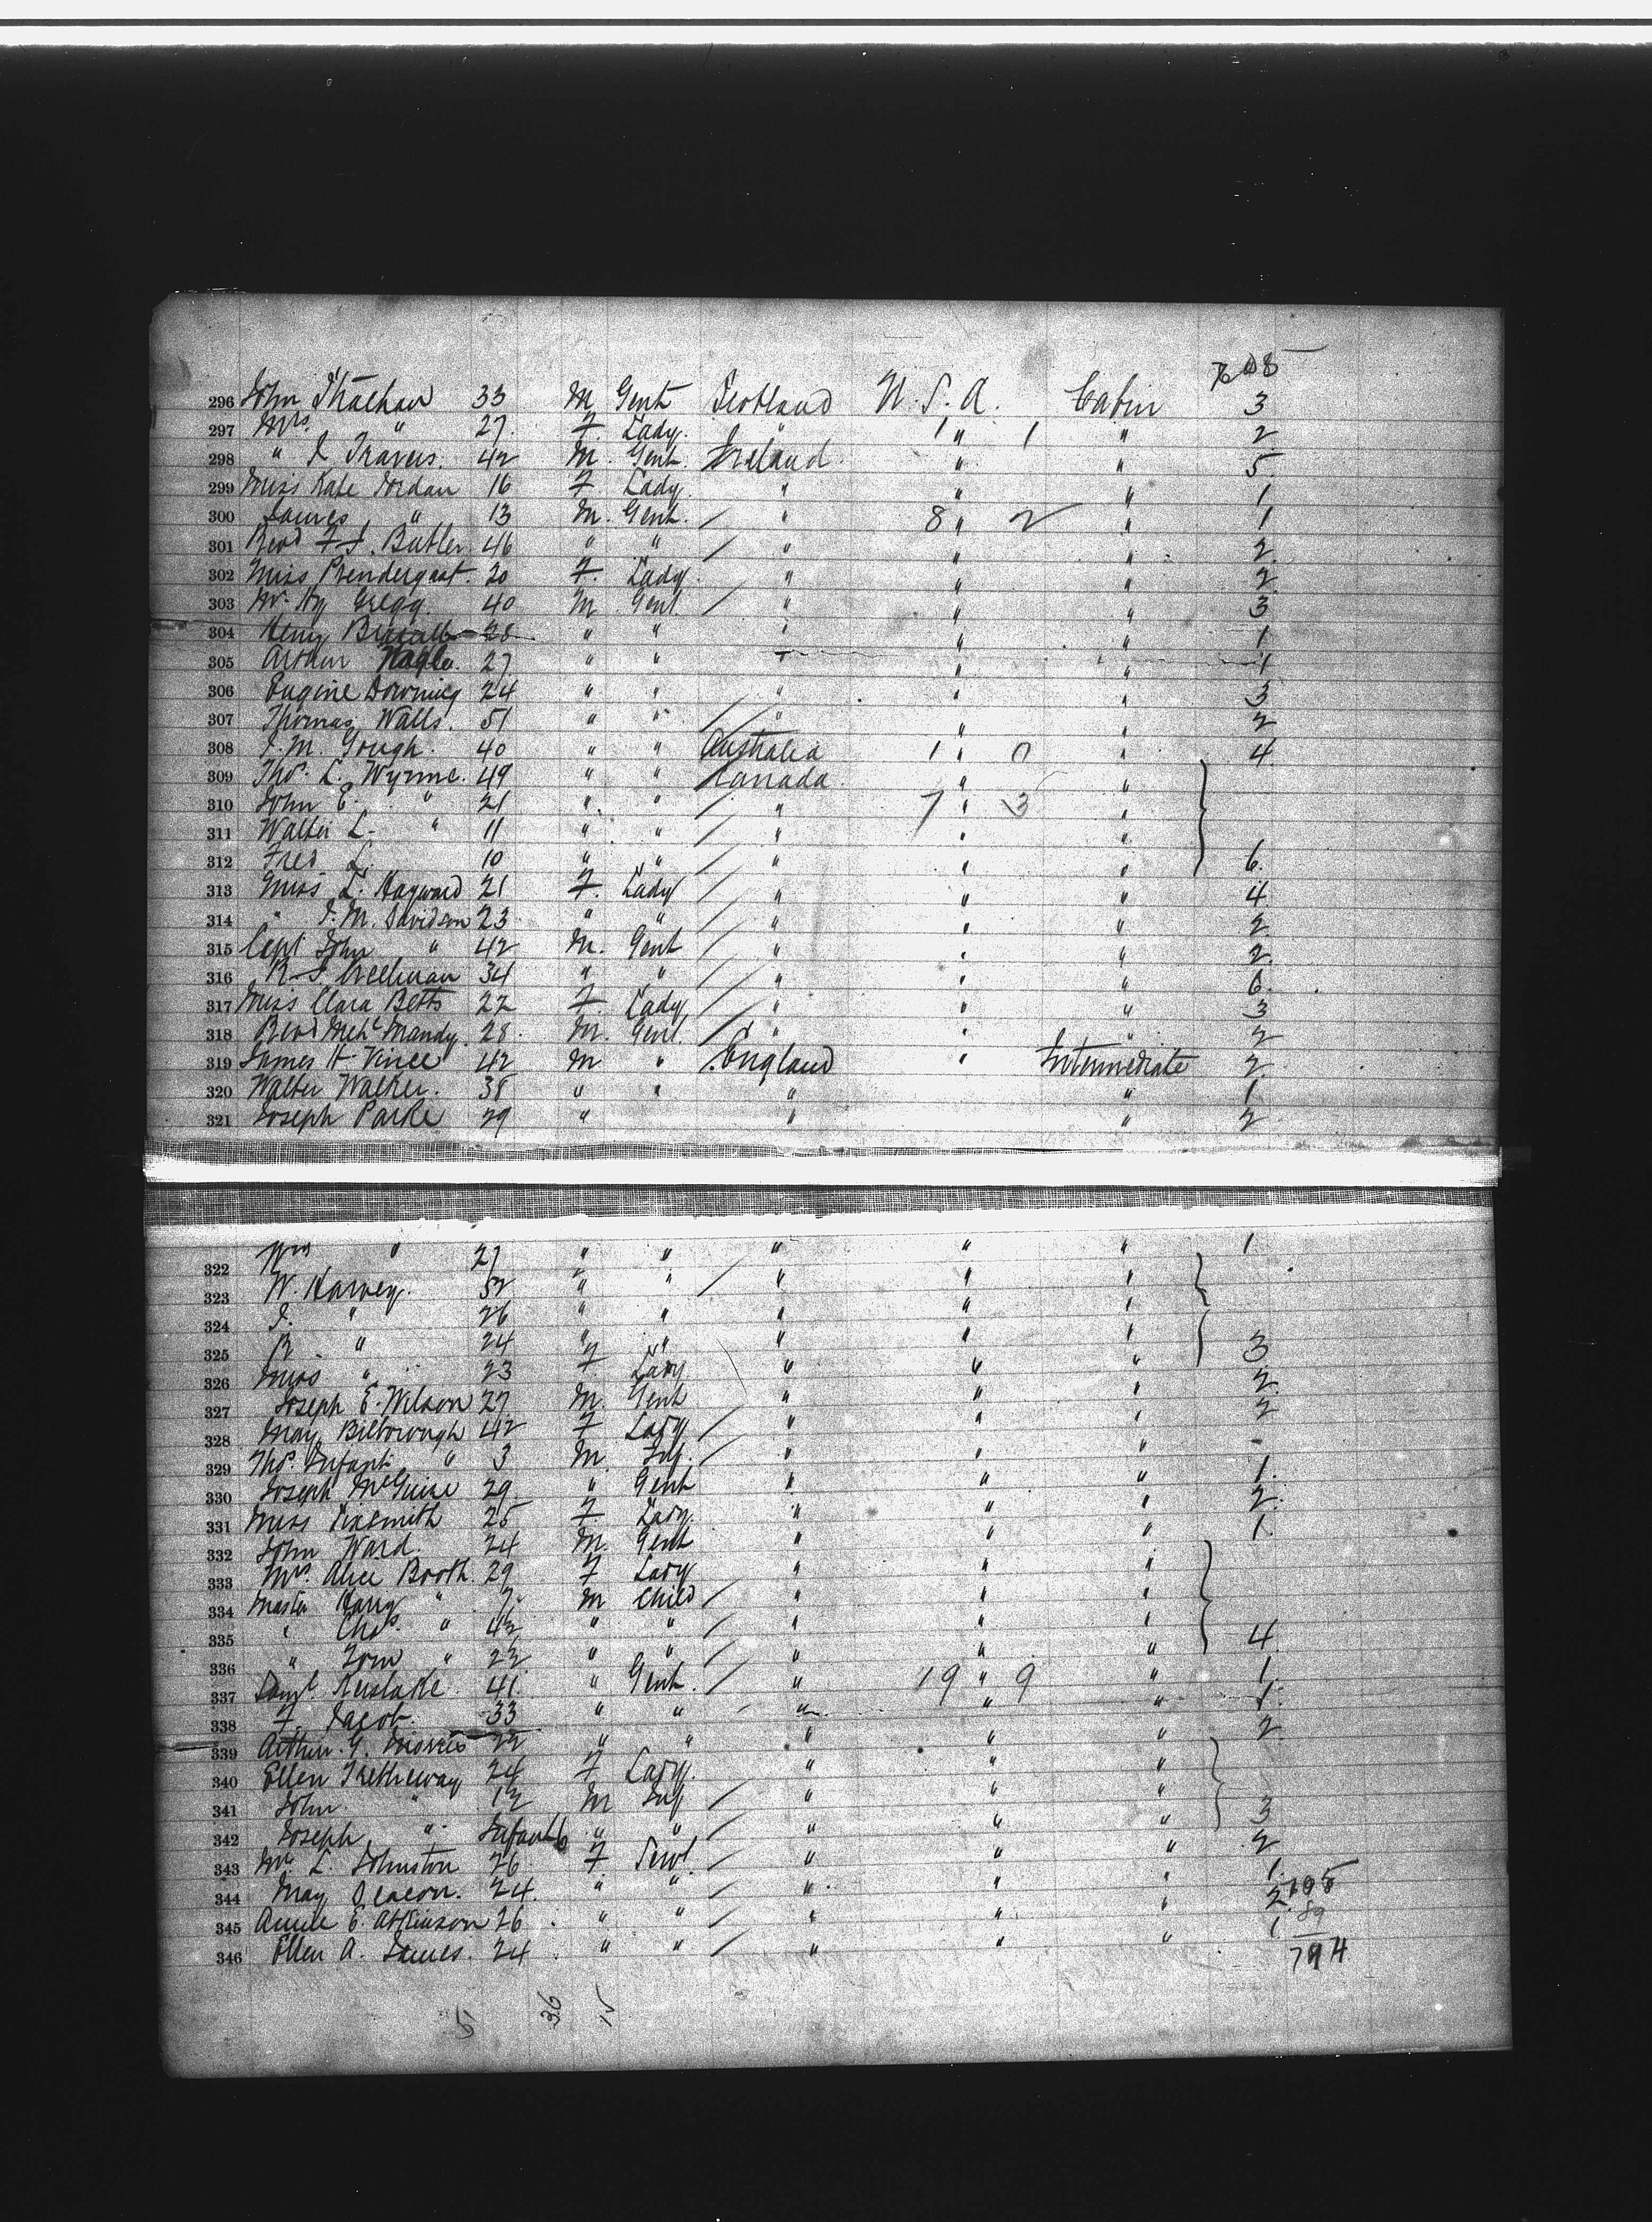 296 John Strachan 33 M Gent Scotland U.S.A. Cabin 3
297 Mrs " 27. F. Lady. " 1 " 1 " 2
298 " J Travers. 42 M. Gent. Ireland. " " 5
299 Miss Kate Jordan 16 F Lady " " " 1
300 James " 13 M. Gent. " 8 " 2 " 1
301 Revd F J. Butler 46 " " " " " 2
302 Miss Prendergast. 20 F. Lady. " " " 2
303 Mr. Hy Gregg. 40 M. Gent " " " 3
304 Henry 28 " " " " " 1
305 Arthur Nagle. 27 " " " " " 1
306 Eugine Downing 24 " " " " " 3
307 Thomas Walls. 51 " " " " " 2
308 J. M. Gough. 40 " " Australia 1 " 0 " 4
309 Thos. L. Wynne. 49 " " Canada. " "
310 John E. " 21 " " " 7 " 3 "
311 Walter L. " 11 " " " " "
312 Fred L. 10 " " " " " 6.
313 Miss L. Hayward 21 F. Lady " " " 4
314 " J. M. Davidson 23. " " " " " 2.
315 Capt John " 42 M. Gent " " " 2.
316 R J. Creelman 34 " " " " " 6.
317 Miss Clara Betts 22 F Lady " " " 3
318 Revd Mandy. 28. M. Gent. " " " 2
319 James H Vince 42 M " England " Intermediate 2.
320 Walter Walker. 38 " " " " 1
321 Joseph Parke 29 " " " 2
322 " 27 " " " " " 1.
323 W. Harvey. 52 " " " " "
324 J. " 26 " " " " "
325 R " 24 " " " " " 3
326 Miss " 23 F Lady " " " 2.
327 Joseph E. Wilson 27. M. Gent " " " 2
328 May Bilborough 42 F Lady " " " -
329 Thos. Infant " 3 M Inf. " " " 1.
330 Joseph McGuire 29. " Gent " " " 2.
331 Miss Sixsmith 25 F Lady. " " " 1.
332 John Ward. 24 M. Gent " " "
333 Mrs. Alice Booth. 29 F Lady " " "
334 Master Harry " 7. M Child " " "
335 " Chas. " 4½ " " " " " 4.
336 " Tom " 2½ " " " " " 1.
337 Saml. Keslake. 41. " Gent. " 19 " 9 " 1.
338 F. Jacob. 33 " " " " " 2.
339 Arthur. G. Morris 22 " " " " "
340 Ellen Tretheway 24 F Lady. " " "
341 John " 1½ M Inf " " " 3
342 Joseph " Infant " " " " " 2
343 L. Johnston 26. F. Servt. " " " 1.
344 May Deacon. 24. " " " " " 2. 705
345 Annie E. Atkinson 26. " " " " " 1. 89
346 Ellen A. James. 24. " " " " " 794
5 36 15